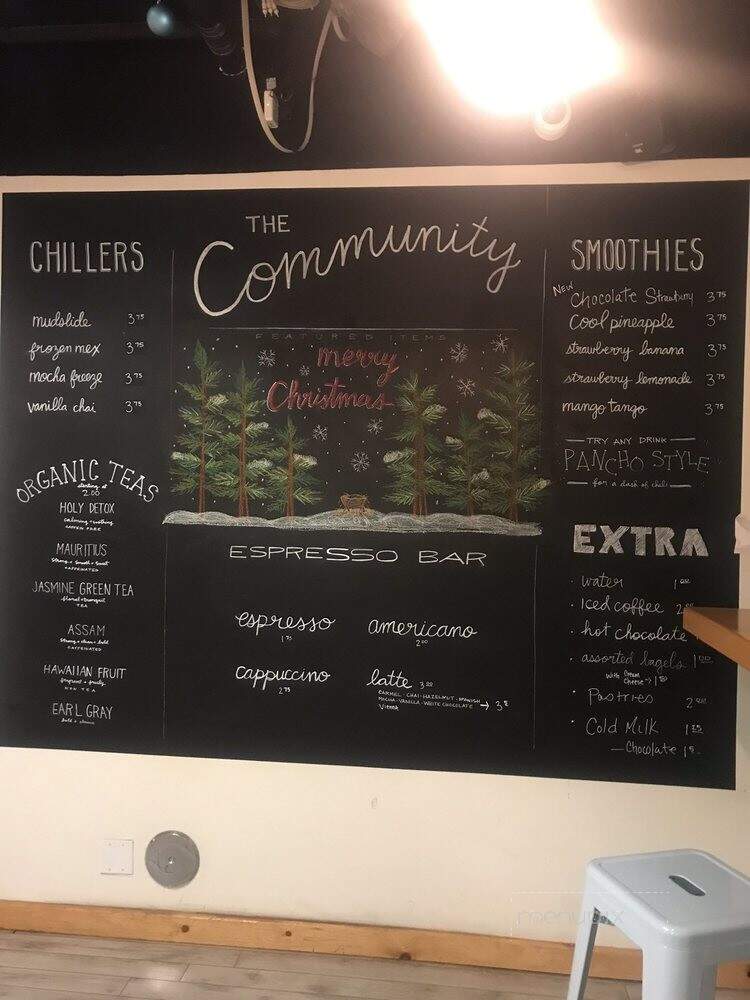 THE
Community
CHILLERS
mudslide 3.75
frozen mex 3.75
mocha freeze 3.75
vanilla chai 3.75
ORGANIC TEAS
starting at
2.00
HOLY DETOX
calming + soothing
CAFFEIN FREE
MAURITIUS
Strong + Smooth + Sweet
CAFFEINATED
JASMINE GREEN TEA
floral + tranquil
TEA
ASSAM
Strong + clean + bold
CAFFEINATED
HAWAIIAN FRUIT
fragrant + fruity
NON TEA
EARL GRAY
bold + classic
FEATURED ITEMS
merry
Christmas
ESPRESSO BAR
espresso
1.75
americano
2.00
cappuccino
2.75
latte 3.00
CARMEL · CHAI · HAZELNUT · SPANISH
MOCHA · VANILLA · WHITE CHOCOLATE
Vienna
SMOOTHIES
NEW Chocolate Strawberry 3.75
Cool pineapple 3.75
strawberry banana 3.75
strawberry lemonade 3.75
mango tango 3.75
TRY ANY DRINK
PANCHO STYLE
for a dash of chili
EXTRA
· water 1.00
· Iced coffee
· hot chocolate
· assorted bagels
with Cream
Cheese →
· Pastries
· Cold Milk
— Chocolate
menupix